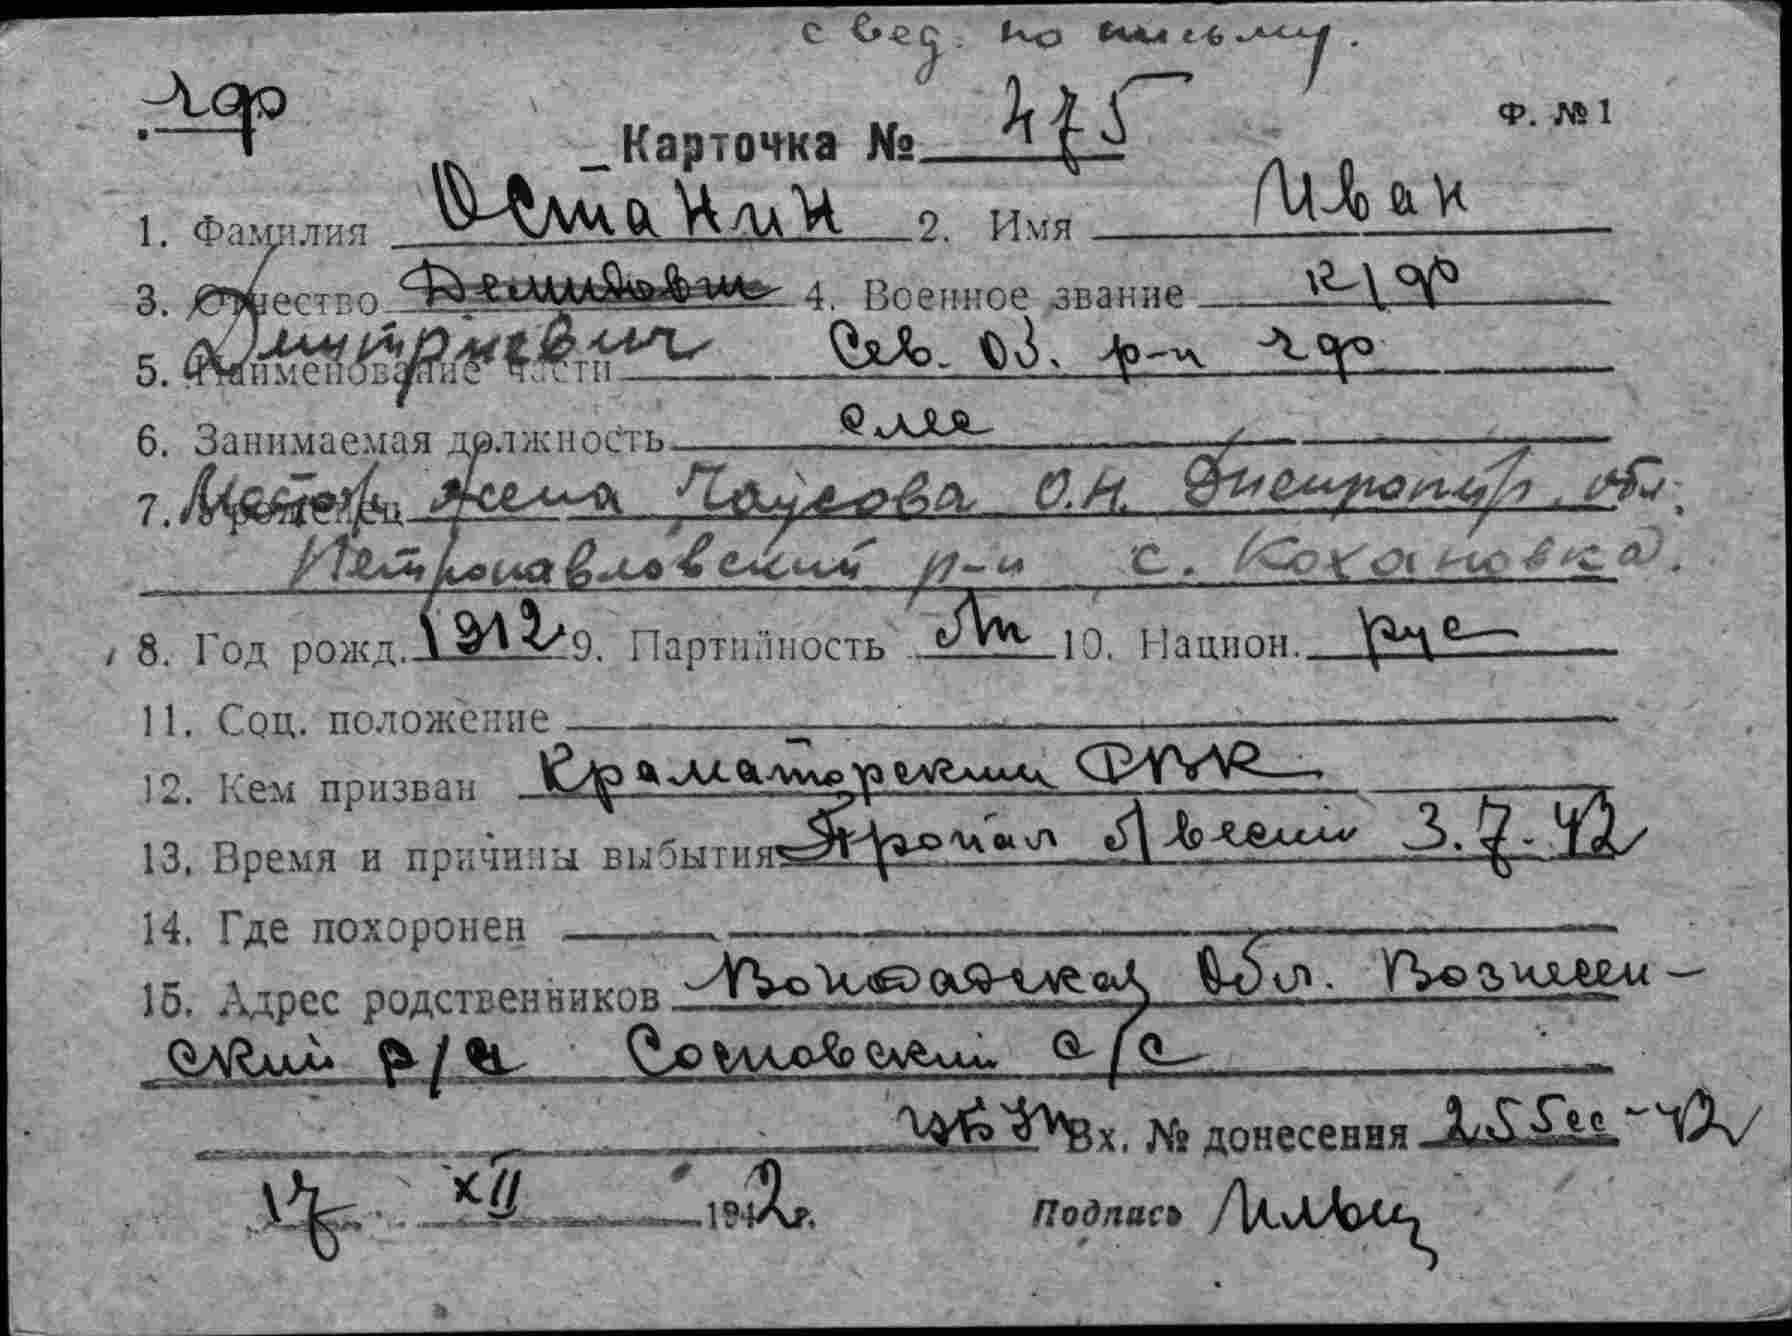 свед. по письму.
чф
Ф. №1
Карточка № 475
1. Фамилия Останин 2. Имя Иван
3. Отчество Демидович 4. Военное звание к/ф
Дмитриевич
5. Наименование части Сев. Оз. р-н чф
6. Занимаемая должность
7. Уроженец жена Чаусова О.Н. Днепропетр. обл.
Петропавловский р-н с. Кохановка.
8. Год рожд. 1912 9. Партийность 10. Национ. рус
11. Соц. положение
12. Кем призван Краматорский РВК
13. Время и причины выбытия Пропал без вести 3.7.42
14. Где похоронен
15. Адрес родственников обл. Вознесен-
ский р/н Сосновский с/с
Вх. № донесения 255сс-42
17 XII 1942г. Подпись